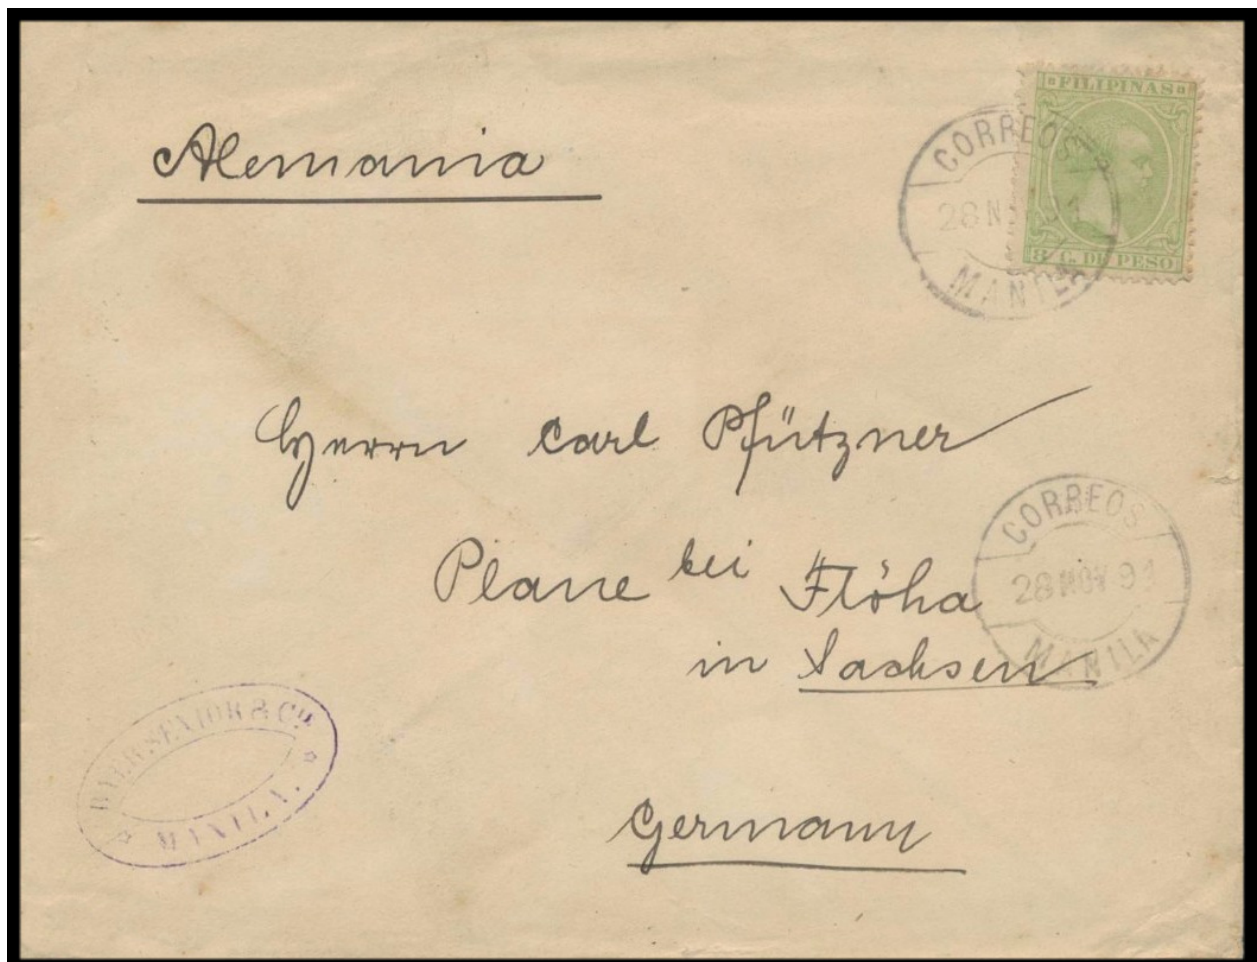 Alemania
FILIPINAS
8 C. DE PESO
CORREOS
MANILA
Herrn Carl Pfützner
Plaue bei Flöha
in Sachsen
Germany
CORREOS
28 NOV 91
MANILA
BAER SENIOR & Co.
MANILA.